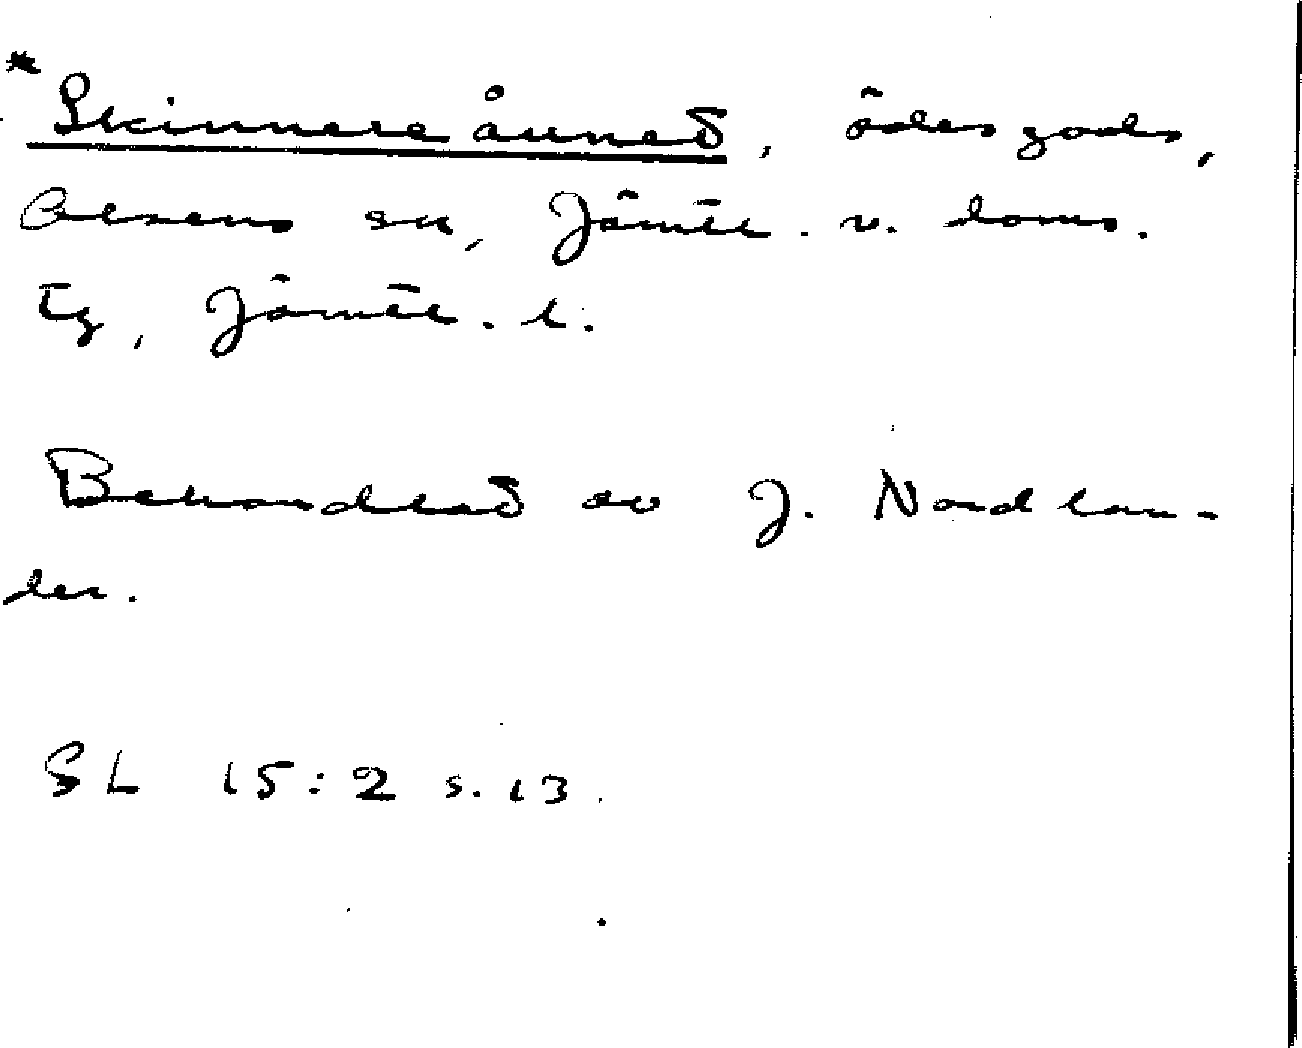 * Skinnareåunet, ödesgods,
Alsens sn, Jämtl. v. doms.
tg, Jämtl. l.
Behandlat av J. Nordlan-
der.
SL 15:2 s. 13.